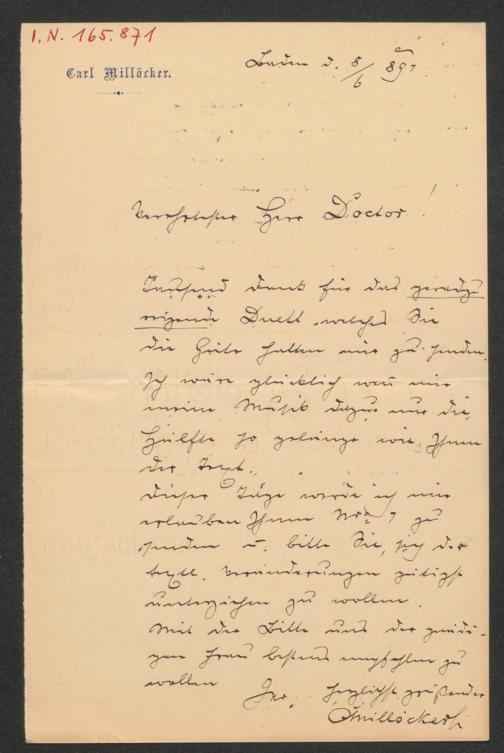 I. N. 165.871
Carl Millöcker.
Baden d. 8/6 897
Verehrtester Herr Doctor!
Tausend Dank für das geradezu
reizende Duett, welches Sie
die Güte hatten mir zu senden.
Ich wäre glücklich wen mir
meine Musik dazu nur die
Hälfte so gelänge wie Ihnen
der Text.
Dieser Tage werde ich mir
erlauben Ihnen Nro 7 zu
senden u. bitte Sie, sich der
textl. Veränderungen gütigst
unterziehen zu wollen.
Mit der Bitte uns der gnädi-
gen Frau bestens empfehlen zu
wollen Ihr herzlichst grüßender
CMillöcker